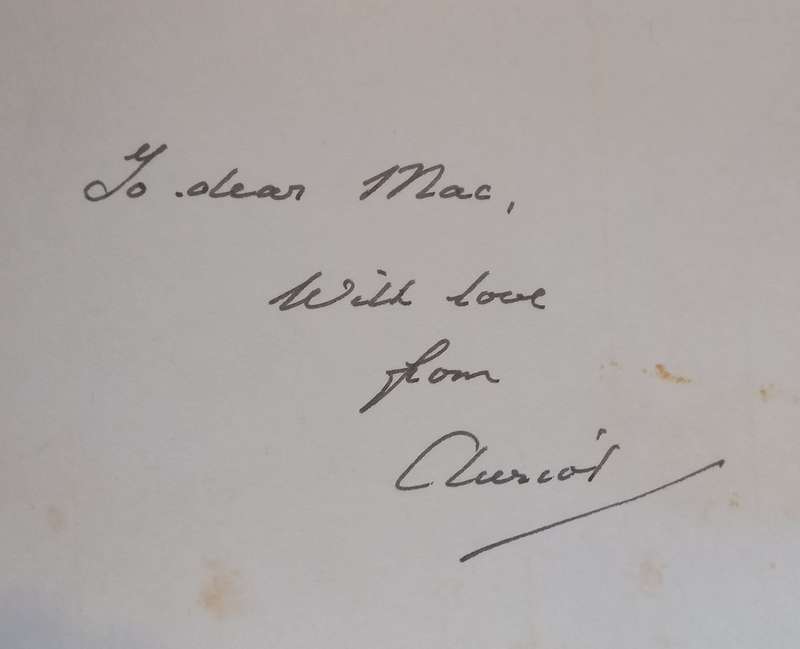 To dear Mac,
With love
from
Auriol